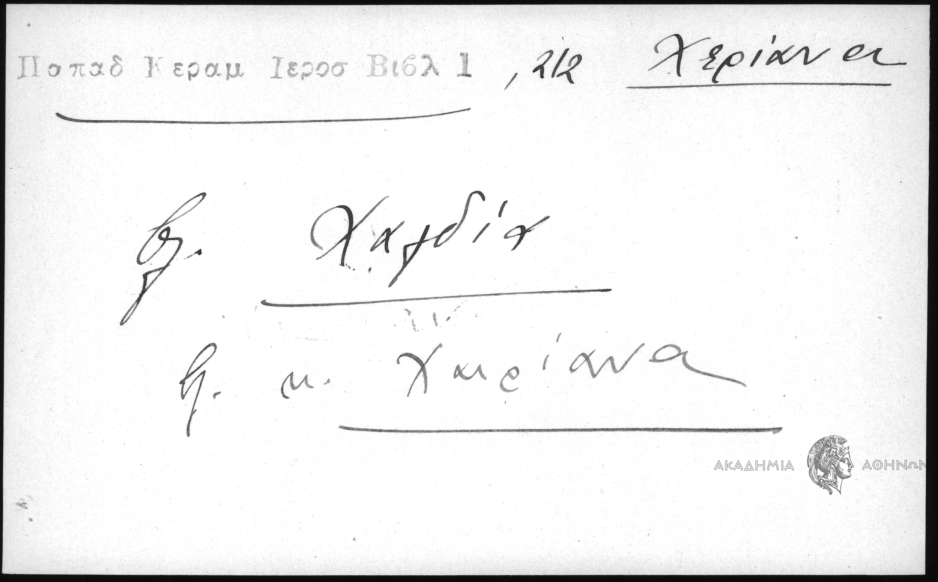 Παπαδ Κεραμ Ιεροσ Βιβλ 1 , 212 Χερίανα
βλ. Χαλδία
βλ. κ. Χαιρίανα
ΑΚΑΔΗΜΙΑ ΑΘΗΝΩΝ